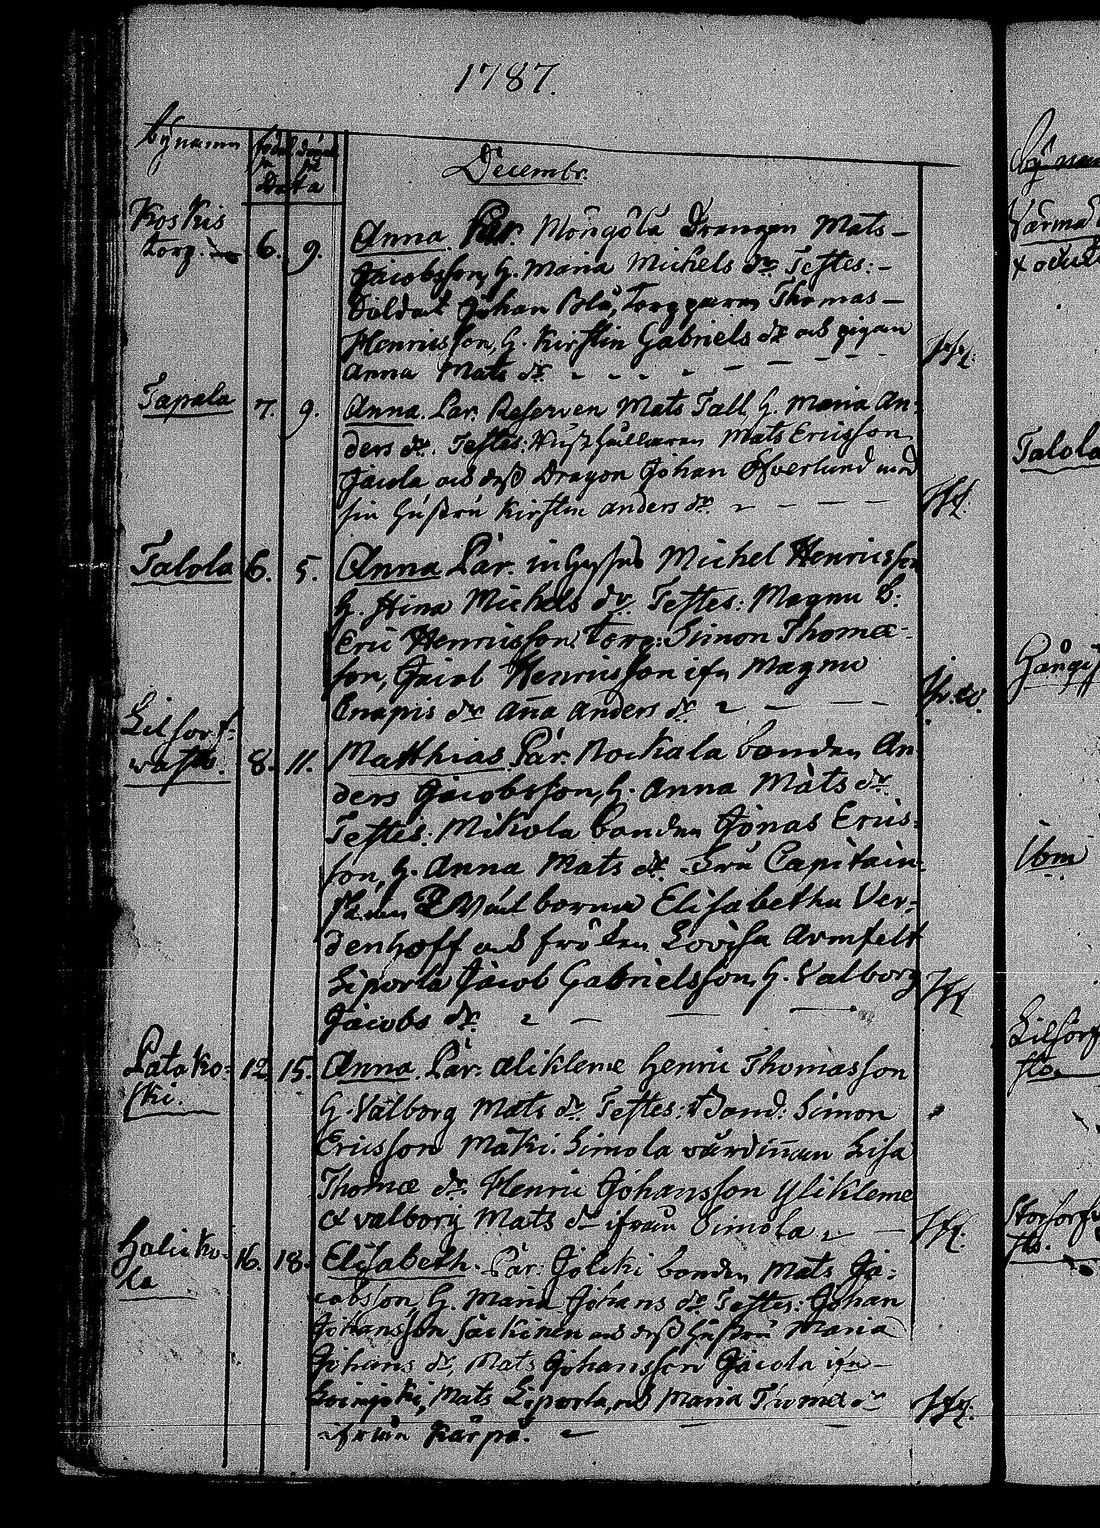 1787.
Bÿnamn
Data
Decembr.
Koskis
torp. 6. 9. Anna. Par. Mongola Drengen Mats
Jacobsson, H. Maria Michels dr Testes:
Soldat Johan Blå, Torpparen Thomas
Henricsson, H. Kirstin Gabriels dr och pigan
Anna Mats dr.
Tapala 7. 9. Anna. Par. Reserven Mats Tall, H. Maria An-
ders dr. Testes: Mats Ericsson
Jacola och dess Dragon Johan Öfverlund med
sin hustru Kirstin anders dr.
Talola 6. 5. Anna Par. inhyses Michel Henricsson
H. Stina Michels dr. Testes: Magnu B:
Eric Henricsson, torp: Simon Thomæ-
son, Jacob Henricsson ifn Magnu
Knapis dr Aña Anders dr.
Lilsorf-
wasto. 8. 11. Matthias. Par. Rockala bonden An
ders Jacobsson, H. Anna Mats dr.
Testes: Mikola bonden Jonas Erics-
son, H. Anna Mats dr. Fru Capitain-
skan Wälborna Elisabetha Ver-
denhoff och fröken Lovisa Armfelt
Liporla Jacob Gabrielsson, H. Valborg
Jacobs dr.
Patako-
ski. 12. 15. Anna. Par: alikleme Henric Thomasson
H. Valborg Mats dr. Testes: Bond: Simon
Ericsson Mäki. Simola värdiñan Lisa
Thomæ dr. Henric Johansson Ylikleme
& valborg Mats dr ifrån Simola
Haliko-
la 16. 18. Elisabeth. Par: Jölcki bonden Mats Ja-
cobsson, H. Maria Johans dr Testes: Johan
Johansson Säckinen och dess hustru Maria
Johans dr, Mats Johansson Jacola ifn
Mats Liporla, och Maria Thomæ dr
ifrån Kärpä.
Talola
Ibm